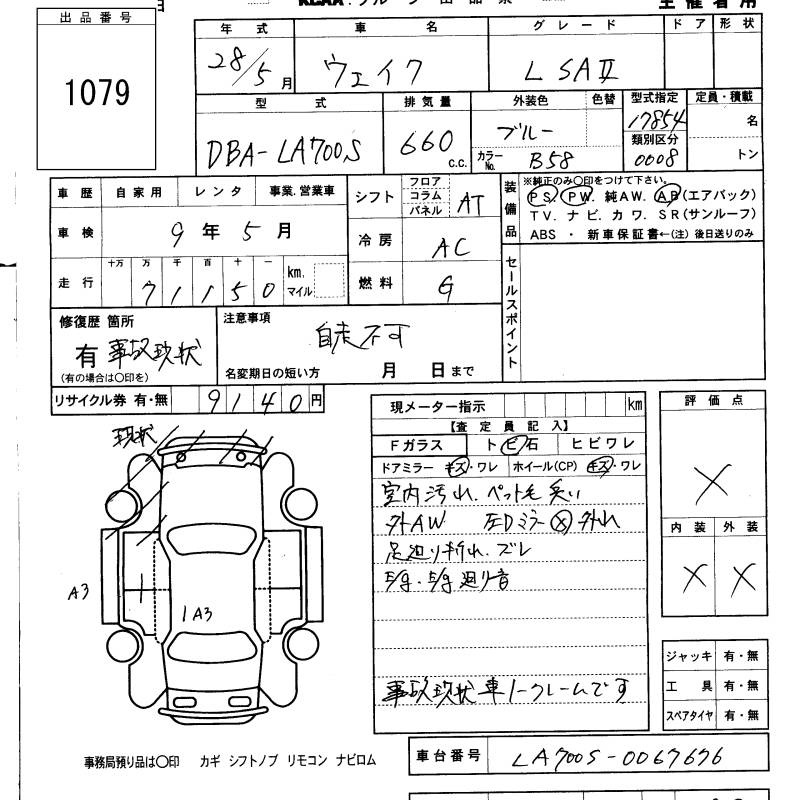 出品番号
1079
年式 車名 グレード ドア 形状
28/5月 ウェイク L SAⅡ
型式 排気量 外装色 色替 型式指定 定員・積載
DBA-LA700S 660 c.c. ブルー 17854 名
カラーNo. B58 類別区分 0008 トン
車歴 自家用 レンタ 事業.営業車
車検 9年5月
走行 十万 万 千 百 十 一
71150 km. マイル
シフト フロア コラム パネル AT
冷房 AC
燃料 G
装備品 ※純正のみ〇印をつけて下さい。
PS. PW. 純AW. AB(エアバック)
TV. ナビ. カワ. SR(サンルーフ)
ABS ・ 新車保証書←(注)後日送りのみ
セールスポイント
修復歴 箇所
有 事故現状
(有の場合は〇印を)
注意事項
自走不可
名変期日の短い方 月 日まで
リサイクル券 有・無 9140円
現メーター指示 km
【査定員記入】
Fガラス トビ石 ヒビワレ
ドアミラー キズ・ワレ ホイール(CP) キズ・ワレ
室内汚れ.ペット毛 臭い
外AW 左Dミラー Ⓧ 外れ
足廻り折れ.ズレ
E/g.E/g廻り音
事故現状車ノークレームです
評価点
X
内装 外装
X X
現状
A3
1A3
ジャッキ 有・無
工具 有・無
スペアタイヤ 有・無
事務局預り品は〇印 カギ シフトノブ リモコン ナビロム
車台番号 LA700S-0067676